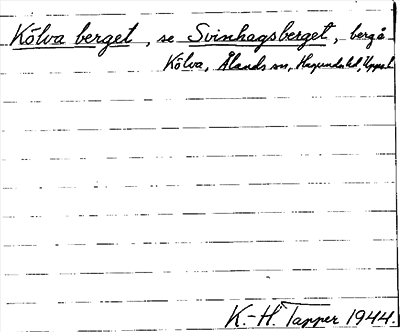 Kölva berget, se Svinhagsberget, berg å
Kölva, Ålands sn, Hagunda hd, Upps. l
K.-H. Tapper 1944.